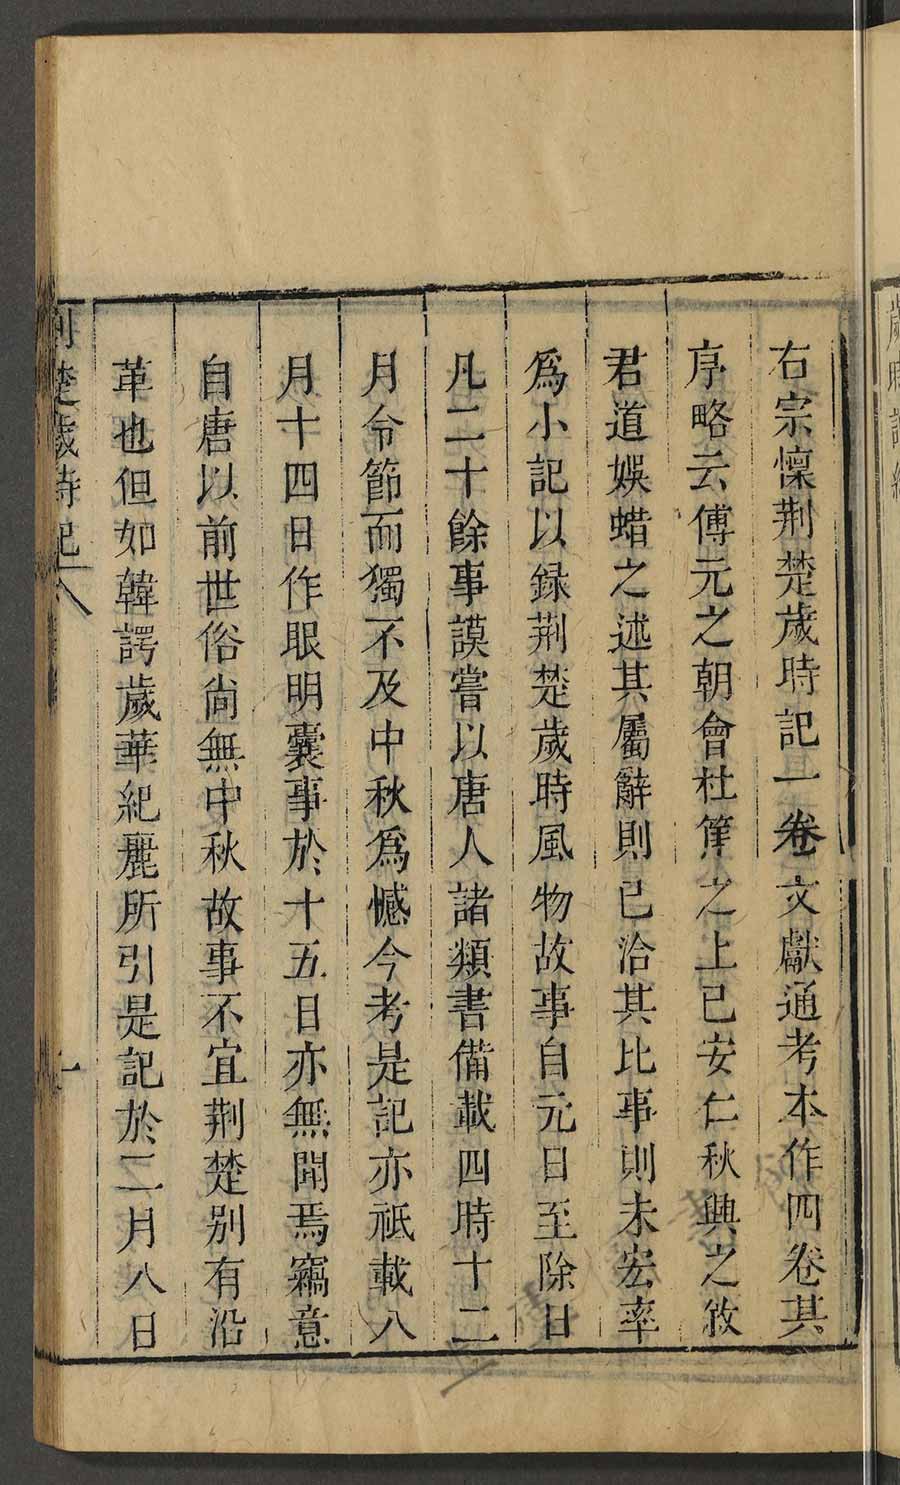 右宗懍荆楚歲時記一卷文獻通考本作四卷其
序略云傅元之朝會杜篤之上巳安仁秋興之敘
君道娛蜡之述其屬辭則已洽其比事則未宏率
爲小記以録荆楚歲時風物故事自元日至除日
凡二十餘事謨嘗以唐人諸類書備載四時十二
月令節而獨不及中秋爲憾今考是記亦祗載八
月十四日作眼明囊事於十五日亦無聞焉竊意
自唐以前世俗尙無中秋故事不宜荆楚别有沿
革也但如韓諤歲華紀麗所引是記於二月八日
荆楚歲時記 八